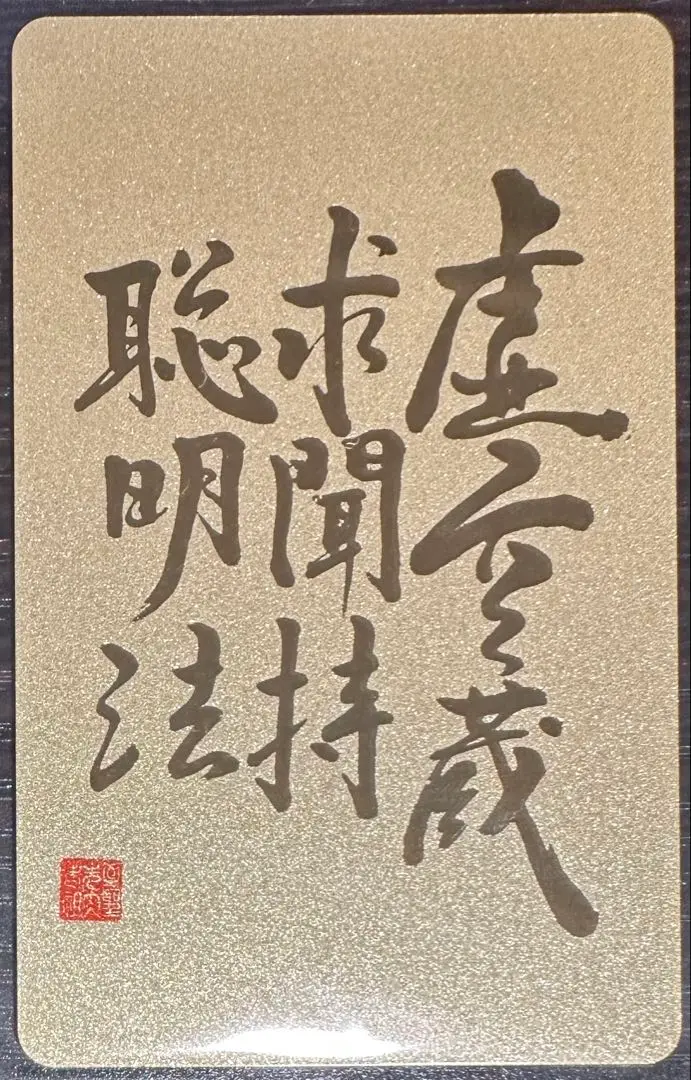 虚空蔵
求聞持
聡明法